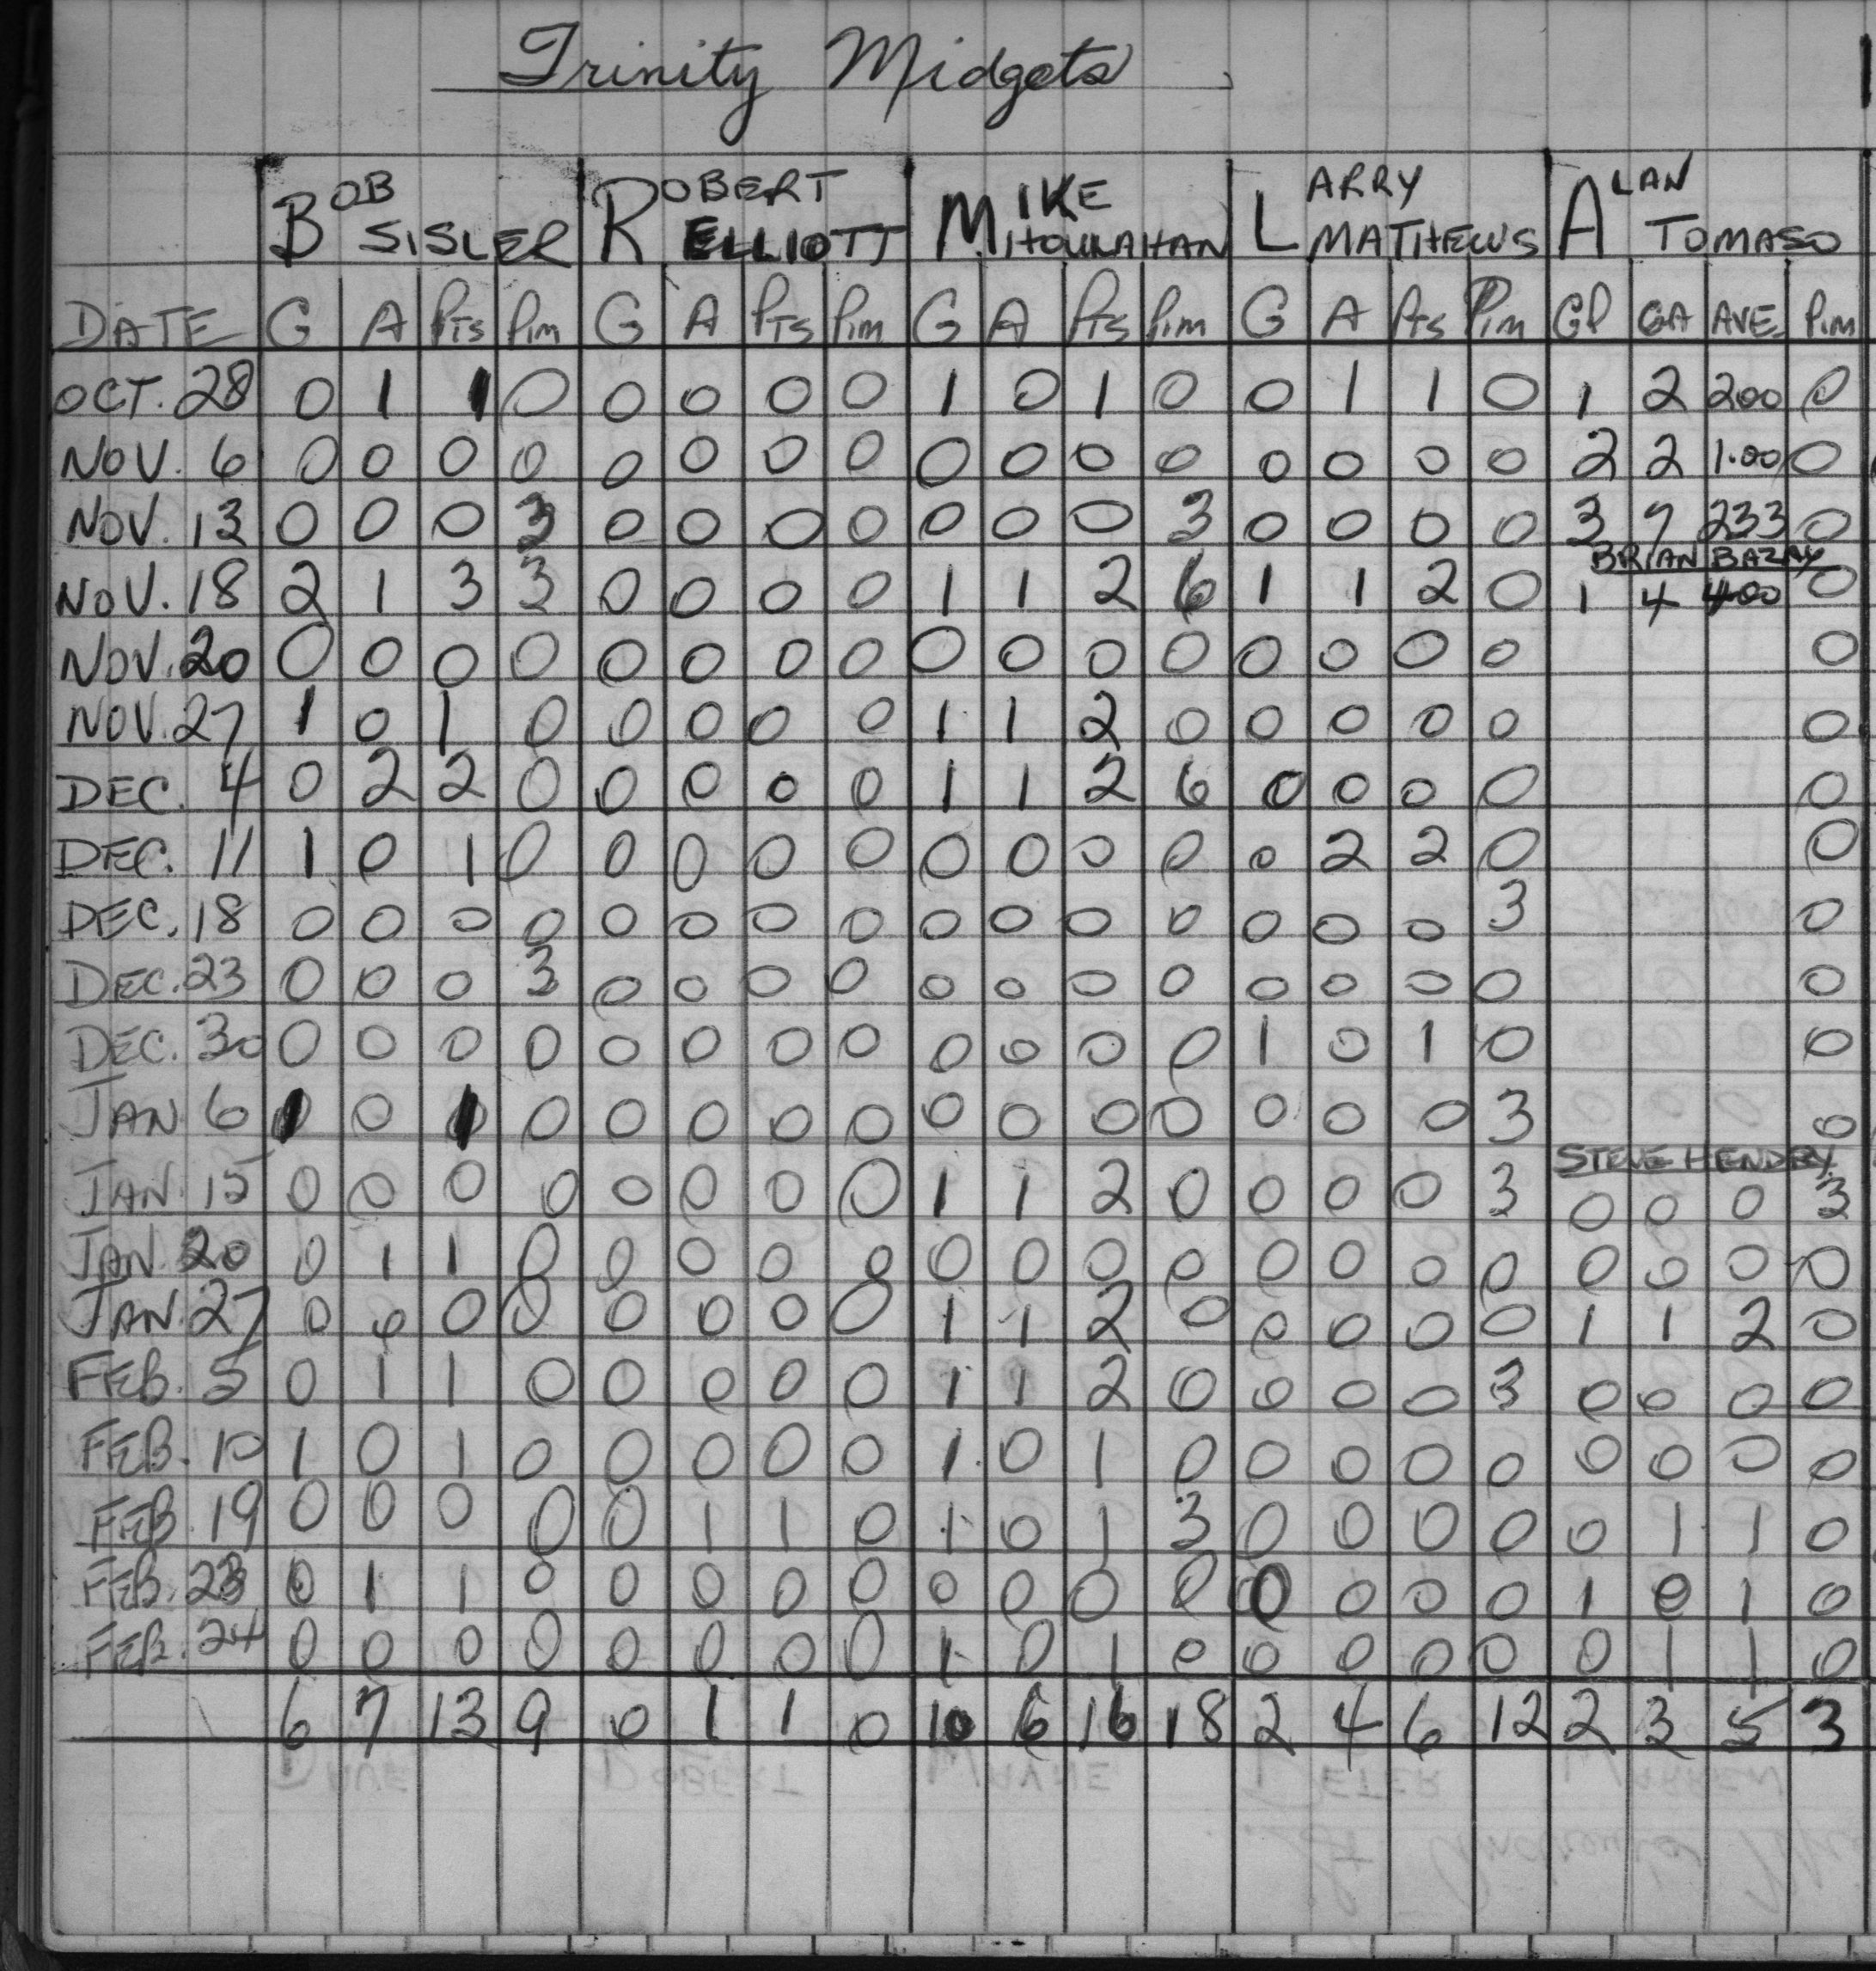 Trinity Midgets
BOB SISLER ROBERT ELLIOTT MIKE LARRY MATHEWS ALAN TOMASO
DATE G A PTS PIM G A PTS PIM G A PTS PIM G A PTS PIM GP GA AVE. PIM
OCT. 28 0 1 1 0 0 0 0 0 1 0 1 0 0 1 1 0 1 2 200 0
NOV. 6 0 0 0 0 0 0 0 0 0 0 0 0 0 0 0 0 2 2 1.00 0
NOV. 13 0 0 0 3 0 0 0 0 0 0 0 3 0 0 0 0 3 7 233 0
BRIAN
NOV. 18 2 1 3 3 0 0 0 0 1 1 2 6 1 1 2 0 1 4 400 0
NOV. 20 0 0 0 0 0 0 0 0 0 0 0 0 0 0 0 0 0
NOV. 27 1 0 1 0 0 0 0 0 1 1 2 0 0 0 0 0 0
DEC. 4 0 2 2 0 0 0 0 0 1 1 2 6 0 0 0 0 0
DEC. 11 1 0 1 0 0 0 0 0 0 0 0 0 0 2 2 0 0
DEC. 18 0 0 0 0 0 0 0 0 0 0 0 0 0 0 0 3 0
DEC. 23 0 0 0 3 0 0 0 0 0 0 0 0 0 0 0 0 0
DEC. 30 0 0 0 0 0 0 0 0 0 0 0 0 1 0 1 0 0
JAN 6 1 0 1 0 0 0 0 0 0 0 0 0 0 0 0 3 0
STEVE HENDRY
JAN. 15 0 0 0 0 0 0 0 0 1 1 2 0 0 0 0 3 0 0 0 3
JAN. 20 0 1 1 0 0 0 0 0 0 0 0 0 0 0 0 0 0 0 0 0
JAN. 27 0 0 0 0 0 0 0 0 1 1 2 0 0 0 0 0 1 1 2 0
FEB. 5 0 1 1 0 0 0 0 0 1 1 2 0 0 0 0 3 0 0 0 0
FEB. 10 1 0 1 0 0 0 0 0 1 0 1 0 0 0 0 0 0 0 0 0
FEB. 19 0 0 0 0 0 1 1 0 1 0 1 3 0 0 0 0 0 1 1 0
FEB. 23 0 1 1 0 0 0 0 0 0 0 0 0 0 0 0 0 1 0 1 0
FEB. 24 0 0 0 0 0 0 0 0 1 0 1 0 0 0 0 0 0 1 1 0
6 7 13 9 0 1 1 0 10 6 16 18 2 4 6 12 2 3 5 3